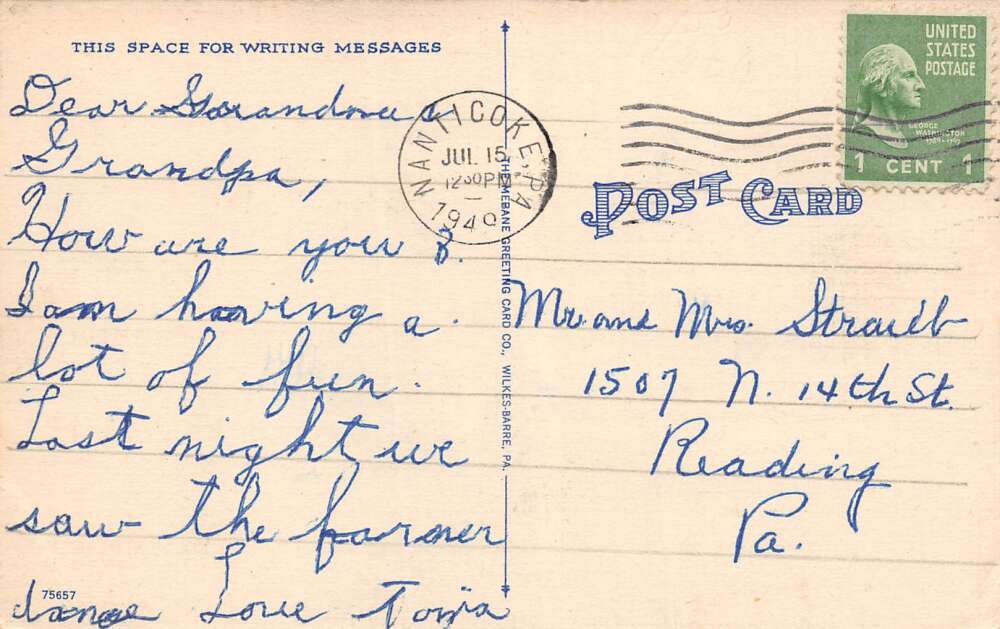 THIS SPACE FOR WRITING MESSAGES
Dear Grandma &
Grandpa,
How are you?
I am having a
lot of fun.
Last night we
saw the farmer
dance Love
75657
NANTICOKE, PA
JUL 15
12 30 PM
1940
THE MEBANE GREETING CARD CO., WILKES-BARRE, PA.
UNITED
STATES
POSTAGE
GEORGE
WASHINGTON
1 CENT 1
POST CARD
Mr. and Mrs.
1507 N. 14th St.
Reading
Pa.